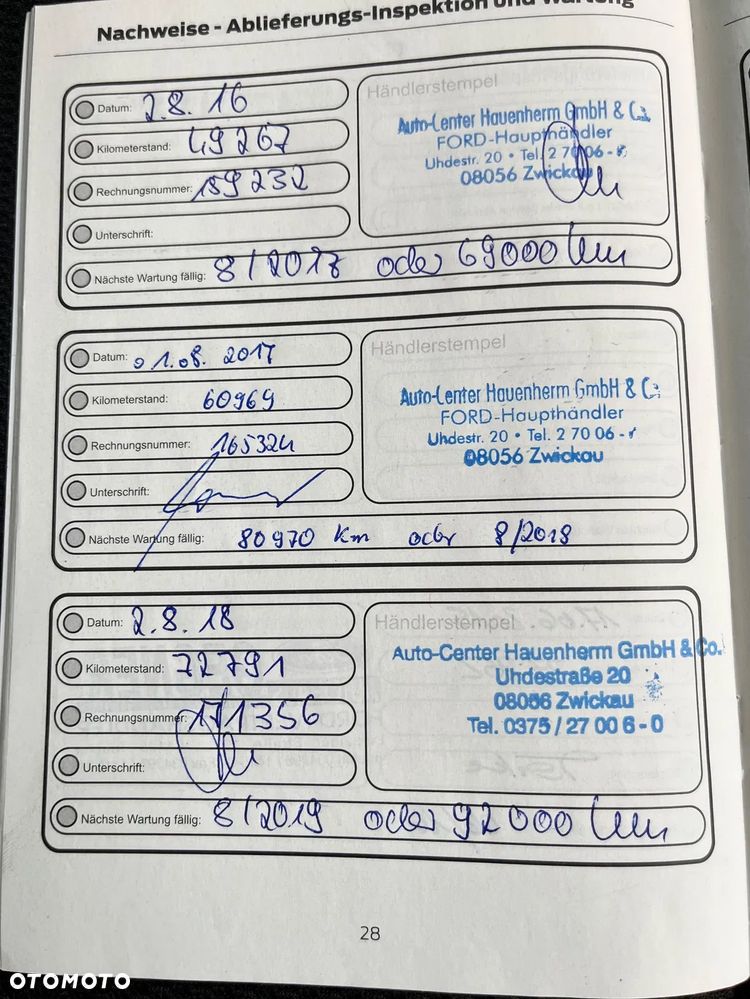 Nachweise - Ablieferungs-Inspektion und Wartung
Datum: 2.8.16
Kilometerstand: 49267
Rechnungsnummer: 159232
Unterschrift:
Nächste Wartung fällig: 8/2017 oder 69000 km
Händlerstempel
Auto-Center Hauenherm GmbH & Co.
FORD-Haupthändler
Uhdestr. 20 • Tel. 2 70 06 -
08056 Zwickau
Datum: 01.08. 2017
Kilometerstand: 60969
Rechnungsnummer: 165324
Unterschrift:
Nächste Wartung fällig: 80970 km oder 8/2018
Händlerstempel
Auto-Center Hauenherm GmbH & Co.
FORD-Haupthändler
Uhdestr. 20 • Tel. 2 70 06 -
08056 Zwickau
Datum: 2.8.18
Kilometerstand: 72791
Rechnungsnummer: 171356
Unterschrift:
Nächste Wartung fällig: 8/2019 oder 92000 km
Händlerstempel
Auto-Center Hauenherm GmbH & Co.
Uhdestraße 20
08056 Zwickau
Tel. 0375 / 27 00 6 - 0
28
OTOMOTO